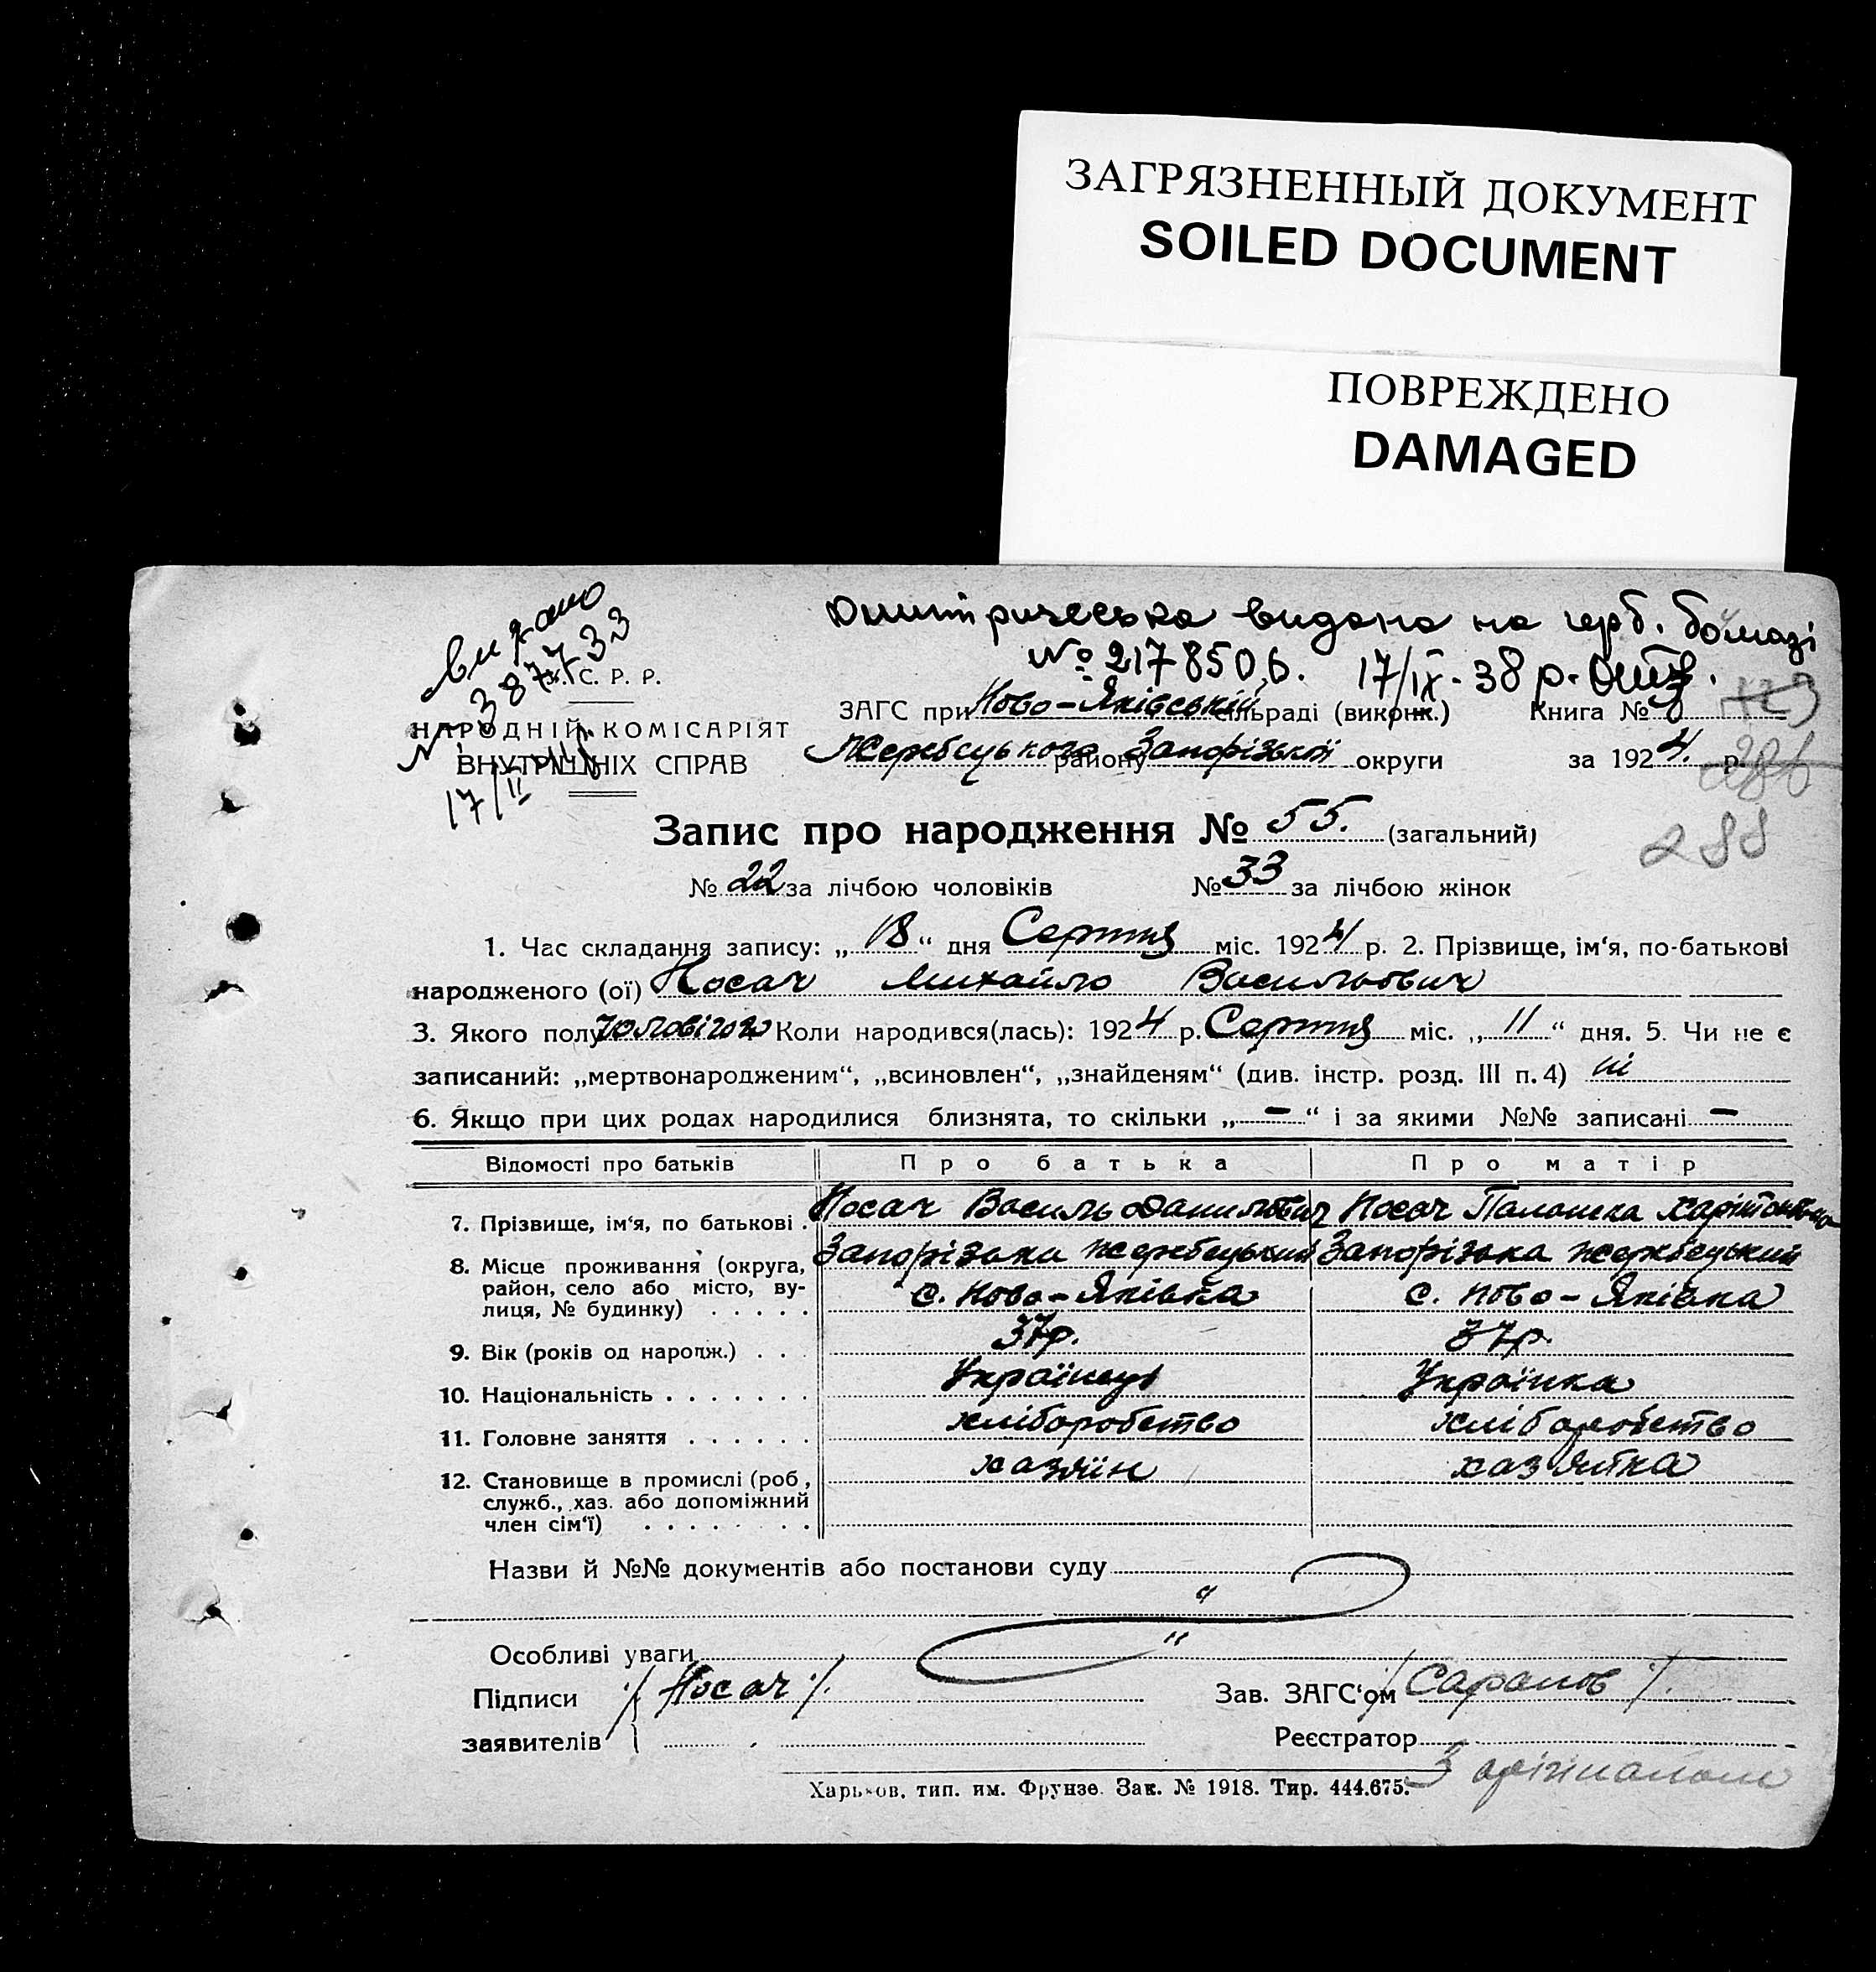 ЗАГРЯЗНЕННЫЙ ДОКУМЕНТ
SOILED DOCUMENT
ПОВРЕЖДЕНО
DAMAGED
видано
№ 387733
17/II
видана на герб. бомазі
№ 217850,б. 17/IX - 38 р.
У. С. Р. Р.
НАРОДНІЙ КОМІСАРІЯТ
ВНУТРІШНІХ СПРАВ
ЗАГС при Ново-Яківській сільраді (виконк.) Книга №
Жеребецького району Запорізької округи за 1924. р.
286
288
Запис про народження № 55. (загальний)
№ 22 за лічбою чоловіків № 33 за лічбою жінок
1. Час складання запису: „18“ дня Серпня міс. 1924 р. 2. Прізвище, ім‘я, по-батькові
народженого (ої) Носач Михайло Васильович
3. Якого полу чоловічого Коли народився(лась): 1924 р. Серпня міс. „11“ дня. 5. Чи не є
записаний: „мертвонародженим“, „всиновлен“, „знайденям“ (див. інстр. розд. III п. 4) ні
6. Якщо при цих родах народилися близнята, то скільки „—“ і за якими №№ записані —
Відомості про батьків Про батька Про матір
7. Прізвище, ім‘я, по батькові . Носач Василь Данилович Носач Палашка Харитоновна
8. Місце проживання (округа, район, село або місто, вулиця, № будинку) . . . . . Запорізька Жеребецький Запорізька Жеребецький
с. Ново-Яківка с. Ново-Яківка
9. Вік (років од народж.) . . . 37р. 37р.
10. Національність . . . . . . . Українець Українка
11. Головне заняття . . . . . . хліборобство хліборобство
12. Становище в промислі (роб, служб., хаз. або допоміжний член сім‘ї) . . . . . . . хазяїн хазяйка
Назви й №№ документів або постанови суду
Особливі уваги
Підписи /Носач/. Зав. ЗАГС‘ом
заявителів Реєстратор
З оригіналом
Харьков, тип. им. Фрунзе. Зак. № 1918. Тир. 444.675.